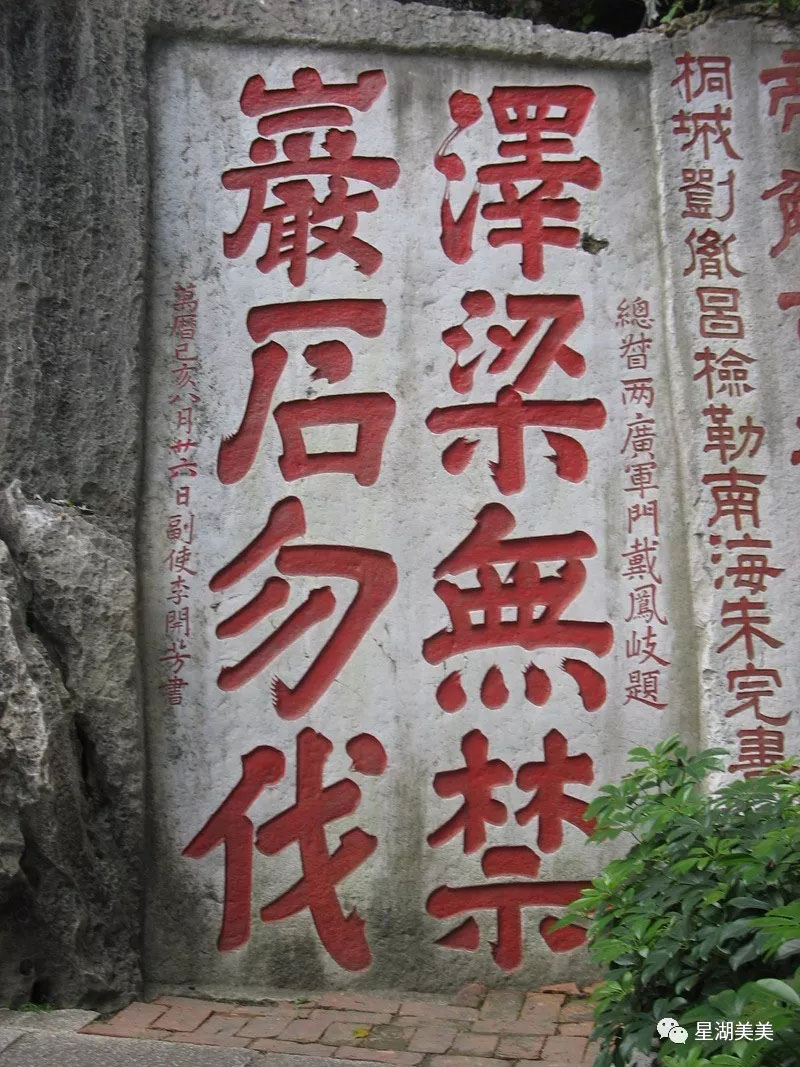 桐城劉胤昌檢勒南海朱完書
總督两廣軍門戴鳳岐題
澤梁無禁
巖石勿伐
萬曆己亥八月廿六日副使李開芳書
星湖美美